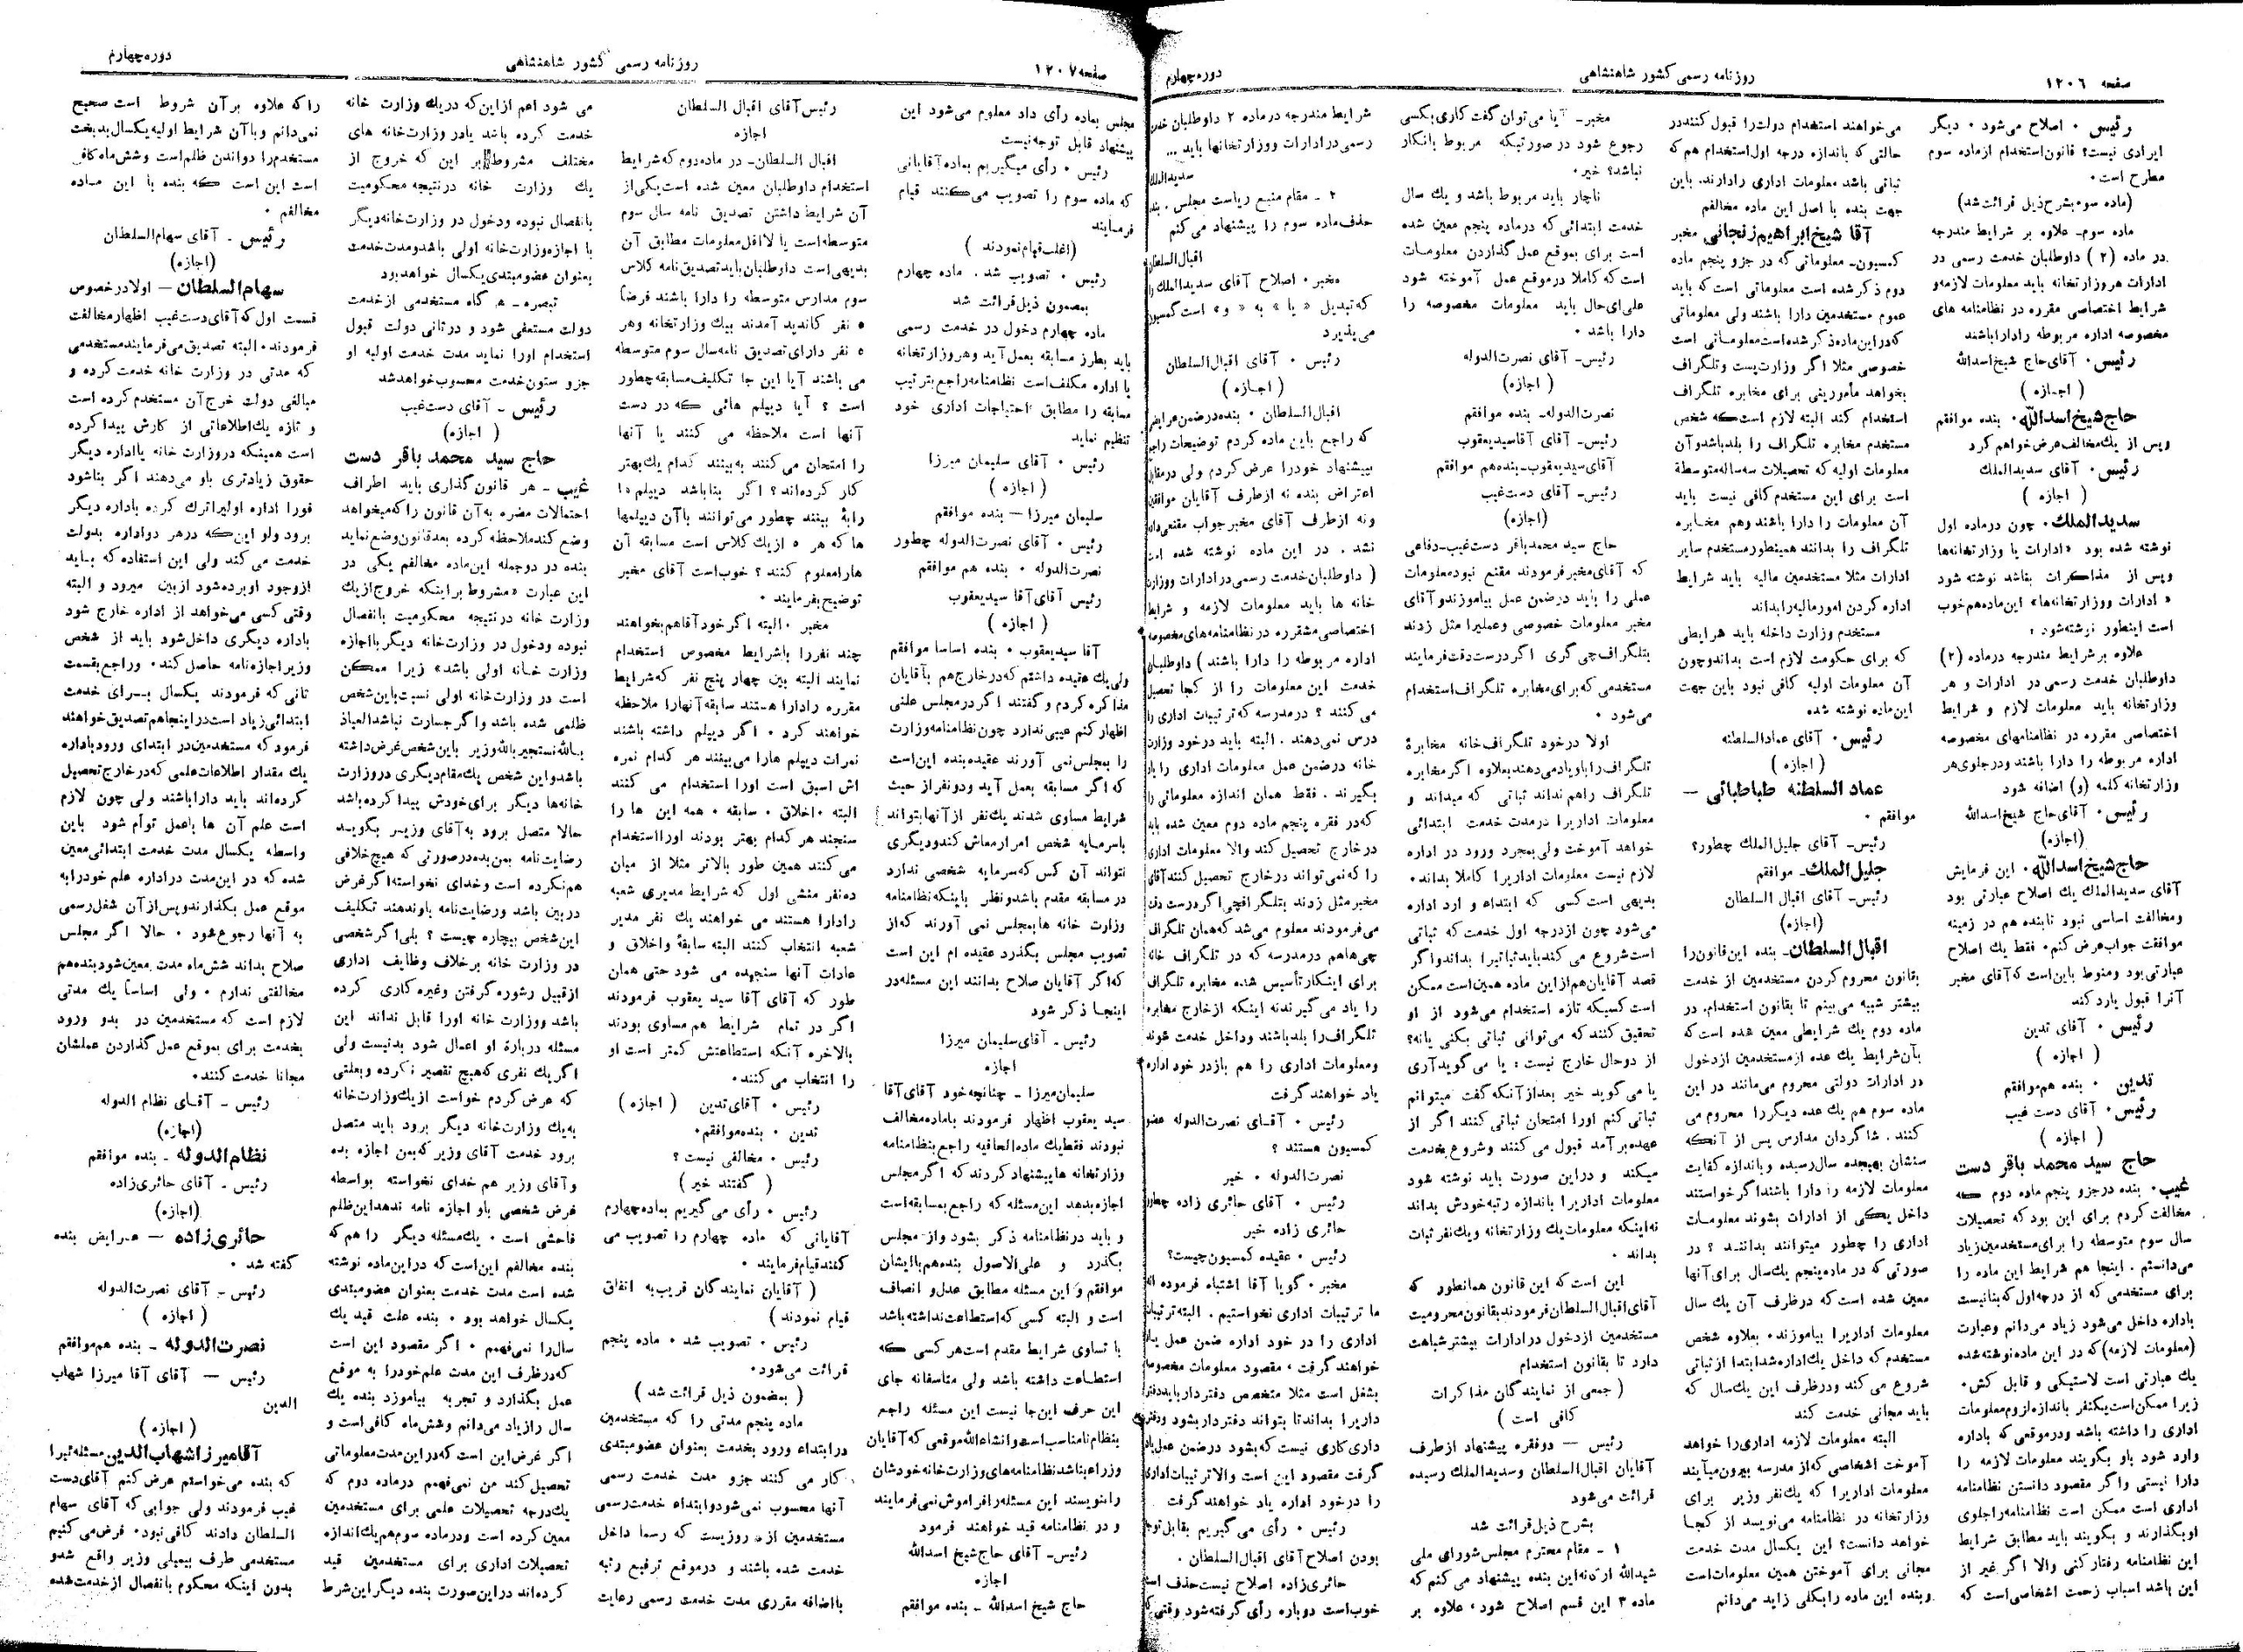 صفحه ۱۲۰۶
روزنامه رسمی کشور شاهنشاهی
دوره چهارم
رئیس ۰ اصلاح می‌شود ۰ دیگر
ایرادی نیست؟ قانون استخدام از ماده سوم
مطرح است۰
(ماده سوم بشرح ذیل قرائت شد)
ماده سوم- علاوه بر شرایط مندرجه
در ماده (۲) داوطلبان خدمت رسمی در
ادارات هر وزارتخانه باید معلومات لازمه و
شرایط اختصاصی مقرره در نظامنامه های
مخصوصه اداره مربوطه را دارا باشند
رئیس۰ آقای حاج شیخ اسدالله
( اجازه )
حاج شیخ اسدالله۰ بنده موافقم
و پس از یک مخالف عرض خواهم کرد
رئیس۰ آقای سدیدالملک
( اجازه )
سدیدالملک۰ چون در ماده اول
نوشته شده بود «ادارات یا وزارتخانه‌ها
و پس از مذاکرات بناشد نوشته شود
« ادارات و وزارتخانه‌ها» این ماده هم خوب
است اینطور نوشته شود :
علاوه بر شرایط مندرجه در ماده (۲)
داوطلبان خدمت رسمی در ادارات و هر
وزارتخانه باید معلومات لازم و شرایط
اختصاصی مقرره در نظامنامهای مخصوصه
اداره مربوطه را دارا باشند و در جلوی هر
وزارتخانه کلمه (و) اضافه شود
رئیس۰ آقای حاج شیخ اسدالله
(اجازه)
حاج شیخ اسدالله۰ این فرمایش
آقای سدیدالملک یک اصلاح عبارتی بود
و مخالفت اساسی نبود تا بنده هم در زمینه
موافقت جواب عرض کنم۰ فقط یک اصلاح
عبارتی بود و منوط باین است که آقای مخبر
آنرا قبول یا رد کند
رئیس ۰ آقای تدین
( اجازه )
تدین ۰ بنده هم موافقم
رئیس۰ آقای دست غیب
( اجازه )
حاج سید محمد باقر دست
غیب۰ بنده در جزو پنجم ماده دوم که
مخالفت کردم برای این بود که تحصیلات
سال سوم متوسطه را برای مستخدمین زیاد
می‌دانستم . اینجا هم شرایط این ماده را
برای مستخدمی که از درجه اول که بنا نیست
باداره داخل می‌شود زیاد می‌دانم و عبارت
(معلومات لازمه) که در این ماده نوشته شده
یک عبارتی است لاستیکی و قابل کش۰
زیرا ممکن است یک نفر باندازه لزوم معلومات
اداری را داشته باشد و در موقعی که باداره
وارد شود باو بگویند معلومات لازمه را
دارا نیستی و اگر مقصود دانستن نظامنامه
اداری است ممکن است نظامنامه را جلوی
او بگذارند و بگویند باید مطابق شرایط
این نظامنامه رفتار کنی والا اگر غیر از
این باشد اسباب زحمت اشخاصی است که
می‌خواهند استخدام دولت را قبول کنند در
حالتی که باندازه درجه اول استخدام هم که
ثباتی باشد معلومات اداری را دارند. باین
جهت بنده با اصل این ماده مخالفم
آقا شیخ ابراهیم زنجانی مخبر
کمسیون- معلوماتی که در جزو پنجم ماده
دوم ذکر شده است معلوماتی است که باید
عموم مستخدمین دارا باشند ولی معلوماتی
که در این ماده ذکر شده است معلوماتی است
خصوصی مثلا اگر وزارت پست و تلگراف
بخواهد مأموریتی برای مخابره تلگراف
استخدام کند البته لازم است که شخص
مستخدم مخابره تلگراف را بلد باشد و آن
معلومات اولیه که تحصیلات سه ساله متوسطه
است برای این مستخدم کافی نیست باید
آن معلومات را دارا باشند و هم مخابره
تلگراف را بدانند همینطور مستخدم سایر
ادارات مثلا مستخدمین مالیه باید شرایط
اداره کردن امور مالیه را بداند
مستخدم وزارت داخله باید شرایطی
که برای حکومت لازم است بداند و چون
آن معلومات اولیه کافی نبود باین جهت
این ماده نوشته شده
رئیس۰ آقای عمادالسلطنه
( اجازه )
عماد السلطنه طباطبائی —
موافقم ۰
رئیس- آقای جلیل الملک چطور؟
جلیل الملک- موافقم
رئیس- آقای اقبال السلطان
(اجازه)
اقبال السلطان- بنده این قانون را
بقانون محروم کردن مستخدمین از خدمت
بیشتر شبیه می‌بینم تا بقانون استخدام. در
ماده دوم یک شرایطی معین شده است که
بآن شرایط یک عده از مستخدمین از دخول
در ادارات دولتی محروم می‌مانند در این
ماده سوم هم یک عده دیگر را محروم می
کنند . شاگردان مدارس پس از آنکه
سنشان بهیجده سال رسیده و باندازه کفایت
معلومات لازمه را دارا باشند اگر خواستند
داخل یکی از ادارات بشوند معلومات
اداری را چطور میتوانند بدانند ؟ در
صورتی که در ماده پنجم یک سال برای آنها
معین شده است که در ظرف آن یک سال
معلومات اداری را بیاموزند۰ بعلاوه شخص
مستخدم که داخل یک اداره شد ابتدا از ثباتی
شروع می کند و در ظرف این یک سال که
باید مجانی خدمت کند
البته معلومات لازمه اداری را خواهد
آموخت اشخاصی که از مدرسه بیرون میآیند
معلومات اداری را که یک نفر وزیر برای
وزارتخانه در نظامنامه می‌نویسد از کجا
خواهد دانست؟ این یکسال مدت خدمت
مجانی برای آموختن همین معلومات است
و بنده این ماده را بکلی زاید می‌دانم
مخبر- آیا می‌توان گفت کاری بکسی
رجوع شود در صورتیکه مربوط بانکار
نباشد؟ خیر۰
ناچار باید مربوط باشد و یک سال
خدمت ابتدائی که در ماده پنجم معین شده
است برای بموقع عمل گذاردن معلومات
است که کاملا در موقع عمل آموخته شود
علی ای حال باید معلومات مخصوصه را
دارا باشد ۰
رئیس- آقای نصرت الدوله
( اجازه)
نصرت الدوله- بنده موافقم
رئیس- آقای آقا سید یعقوب
آقای سید یعقوب- بنده هم موافقم
رئیس- آقای دست غیب
(اجازه)
حاج سید محمد باقر دست غیب- دفاعی
که آقای مخبر فرمودند مقنع نبود معلومات
عملی را باید در ضمن عمل بیاموزند و آقای
مخبر معلومات خصوصی و عملی را مثل زدند
بتلگرافچی گری اگر درست دقت فرمایند
مستخدمی که برای مخابره تلگراف استخدام
می‌شود ۰
اولا در خود تلگراف خانه مخابرهٔ
تلگراف را باو یاد می‌دهند بعلاوه اگر مخابره
تلگراف را هم نداند ثباتی که میداند و
معلومات اداری را در مدت خدمت ابتدائی
خواهد آموخت ولی بمجرد ورود در اداره
لازم نیست معلومات اداری را کاملا بداند۰
بدیهی است کسی که ابتداء وارد اداره
می‌شود چون از درجه اول خدمت که ثباتی
است شروع می کند باید ثباتی را بداند و اگر
قصد آقایان هم از این ماده همین است ممکن
است کسیکه تازه استخدام می‌شود از او
تحقیق کنند که می‌توانی ثباتی بکنی یا نه؟
از دو حال خارج نیست : یا می گوید آری
یا می گوید خیر بعد از آنکه گفت میتوانم
ثباتی کنم او را امتحان ثباتی کنند اگر از
عهده برآمد قبول می کنند و شروع بخدمت
میکند و در این صورت باید نوشته شود
معلومات اداری را باندازه رتبه خودش بداند
نه اینکه معلومات یک وزارتخانه و یک نفر ثبات
بداند ۰
این است که این قانون همانطور که
آقای اقبال السلطان فرمودند بقانون محرومیت
مستخدمین از دخول در ادارات بیشتر شباهت
دارد تا بقانون استخدام
( جمعی از نمایندگان مذاکرات
کافی است )
رئیس — دو فقره پیشنهاد از طرف
آقایان اقبال السلطان و سدیدالملک رسیده
قرائت می‌شود
بشرح ذیل قرائت شد
۱ - مقام محترم مجلس شورای ملی
شیدالله ارکانه این بنده پیشنهاد می کنم که
ماده ۳ این قسم اصلاح شود، علاوه بر
شرایط مندرجه در ماده ۲ داوطلبان خدمت
رسمی در ادارات و وزارتخانها باید ...
سدیدالملک
۲ - مقام منیع ریاست مجلس . بنده
حذف ماده سوم را پیشنهاد می کنم
اقبال السلطان
مخبر ۰ اصلاح آقای سدیدالملک را
که تبدیل « یا » به « و » است کمسیون
می‌پذیرد
رئیس ۰ آقای اقبال السلطان
( اجازه )
اقبال السلطان ۰ بنده در ضمن عرایض
که راجع باین ماده کردم توضیحات راجع
پیشنهاد خود را عرض کردم ولی در مقابل
اعتراض بنده نه از طرف آقایان موافقین
و نه از طرف آقای مخبر جواب مقنعی داده
نشد . در این ماده نوشته شده است
( داوطلبان خدمت رسمی در ادارات و وزارت
خانه ها باید معلومات لازمه و شرایط
اختصاصی مقرره در نظامنامه های مخصوصه
اداره مربوطه را دارا باشند ) داوطلبان
خدمت این معلومات را از کجا تحصیل
می کنند ؟ در مدرسه که ترتیبات اداری را
درس نمی‌دهند . البته باید در خود وزارت
خانه در ضمن عمل معلومات اداری را یاد
بگیرند . فقط همان اندازه معلوماتی را
که در فقره پنجم ماده دوم معین شده باید
در خارج تحصیل کند والا معلومات اداری
را که نمی‌تواند در خارج تحصیل کنند آقای
مخبر مثل زدند بتلگرافچی اگر درست دقت
می‌فرمودند معلوم می‌شد که همان تلگراف
چی‌هاهم در مدرسه که در تلگراف خانه
برای اینکار تأسیس شده مخابره تلگراف
را یاد می گیرند نه اینکه از خارج مخابره
تلگراف را بلد باشند و داخل خدمت شوند
و معلومات اداری را هم باز در خود اداره
یاد خواهند گرفت
رئیس ۰ آقای نصرت الدوله عضو
کمسیون هستند ؟
نصرت الدوله ۰ خیر
رئیس ۰ آقای حائری زاده چطور
حائری زاده خیر
رئیس ۰ عقیده کمسیون چیست؟
مخبر ۰ گویا آقا اشتباه فرموده اند
ما ترتیبات اداری نخواستیم . البته ترتیبات
اداری را در خود اداره ضمن عمل یاد
خواهند گرفت ، مقصود معلومات مخصوصه
بشغل است مثلا متخصص دفتردار باید دفتر
داری را بداند تا بتواند دفتردار بشود و دفتر
داری کاری نیست که بشود در ضمن عمل یاد
گرفت مقصود این است والا ترتیبات اداری
را در خود اداره یاد خواهند گرفت
رئیس ۰ رأی می گیریم بقابل توجه
بودن اصلاح آقای اقبال السلطان .
حائری زاده اصلاح نیست حذف است
خوب است دوباره رأی گرفته شود وقتی که
صفحه ۱۲۰۷
روزنامه رسمی کشور شاهنشاهی
دوره چهارم
مجلس بماده رأی داد معلوم می‌شود این
پیشنهاد قابل توجه نیست
رئیس ۰ رأی میگیریم بماده آقایانی
که ماده سوم را تصویب می‌کنند قیام
فرمایند
(اغلب قیام نمودند )
رئیس ۰ تصویب شد . ماده چهارم
بمضمون ذیل قرائت شد
ماده چهارم دخول در خدمت رسمی
باید بطرز مسابقه بعمل آید و هر وزارتخانه
یا اداره مکلف است نظامنامه راجع بترتیب
مسابقه را مطابق احتیاجات اداری خود
تنظیم نماید
رئیس ۰ آقای سلیمان میرزا
( اجازه )
سلیمان میرزا — بنده موافقم
رئیس ۰ آقای نصرت الدوله چطور
نصرت الدوله ۰ بنده هم موافقم
رئیس آقای آقا سید یعقوب
( اجازه )
آقا سید یعقوب ۰ بنده اساسا موافقم
ولی یک عقیده داشتم که در خارج هم بآقایان
مذاکره کردم و گفتند اگر در مجلس علنی
اظهار کنم عیبی ندارد چون نظامنامه وزارت
را بمجلس نمی آورند عقیده بنده این است
که اگر مسابقه بعمل آید و دو نفر از حیث
شرایط مساوی شدند یک نفر از آنها بتواند
باسرمایه شخص امرار معاش کند و دیگری
نتواند آن کس که سرمایه شخصی ندارد
در مسابقه مقدم باشد و نظر باینکه نظامنامه
وزارت خانه ها بمجلس نمی آورند که از
تصویب مجلس بگذرد عقیده ام این است
که اگر آقایان صلاح بدانند این مسئله در
اینجا ذکر شود
رئیس- آقای سلیمان میرزا
اجازه
سلیمان میرزا - چنانچه خود آقای آقا
سید یعقوب اظهار فرمودند با ماده مخالف
نبودند فقط یک ماده الحاقیه راجع بنظامنامه
وزارتخانه ها پیشنهاد کردند که اگر مجلس
اجازه بدهد این مسئله که راجع بمسابقه است
و باید در نظامنامه ذکر بشود و از مجلس
بگذرد و علی الاصول بنده هم با ایشان
موافقم و این مسئله مطابق عدل و انصاف
است و البته کسی که استطاعت نداشته باشد
با تساوی شرایط مقدم است هر کسی که
استطاعت داشته باشد ولی متأسفانه جای
این حرف این جا نیست این مسئله راجع
بنظام نامه مناسب است و انشاءالله موقعی که آقایان
وزراء بناشد نظامنامه های وزارت خانه خودشان
را بنویسند این مسئله را فراموش نمی‌فرمایند
و در نظامنامه قید خواهند فرمود
رئیس- آقای حاج شیخ اسدالله
اجازه
حاج شیخ اسدالله - بنده موافقم
رئیس آقای اقبال السلطان
اجازه
اقبال السلطان- در ماده دوم که شرایط
استخدام داوطلبان معین شده است یکی از
آن شرایط داشتن تصدیق نامه سال سوم
متوسطه است یا لااقل معلومات مطابق آن
بدیهی است داوطلبان باید تصدیق نامه کلاس
سوم مدارس متوسطه را دارا باشند فرضاً
۵ نفر کاندید آمدند بیک وزارتخانه و هر
۵ نفر دارای تصدیق نامه سال سوم متوسطه
می باشند آیا این جا تکلیف مسابقه چطور
است ؟ آیا دیپلم هائی که در دست
آنها است ملاحظه می کنند یا آنها
را امتحان می کنند به بینند کدام یک بهتر
کار کرده‌اند؟ اگر بنا باشد دیپلم ها
را به بینند چطور می‌توانند با آن دیپلمها
ها که هر ۵ از یک کلاس است مسابقه آن
ها را معلوم کنند ؟ خوب است آقای مخبر
توضیح بفرمایند ۰
مخبر ۰ البته اگر خود آقاهم بخواهند
چند نفر را باشرایط مخصوص استخدام
نمایند البته بین چهار پنج نفر که شرایط
مقرره را دارا هستند سابقه آنها را ملاحظه
خواهند کرد ۰ اگر دیپلم داشته باشند
نمرات دیپلم ها را می‌بینند هر کدام نمره
اش اسبق است او را استخدام می کنند
البته ۰اخلاق ۰ سابقه ۰ همه این ها را
سنجند هر کدام بهتر بودند او را استخدام
می کنند همین طور بالاتر مثلا از میان
ده نفر منشی اول که شرایط مدیری شعبه
را دارا هستند می خواهند یک نفر مدیر
شعبه انتخاب کنند البته سابقهٔ و اخلاق و
عادات آنها سنجیده می شود حتی همان
طور که آقای آقا سید یعقوب فرمودند
اگر در تمام شرایط هم مساوی بودند
بالاخره آنکه استطاعتش کمتر است او
را انتخاب می کنند۰
رئیس ۰ آقای تدین ( اجازه )
تدین ۰ بنده موافقم۰
رئیس ۰ مخالفی نیست ؟
( گفتند خیر )
رئیس ۰ رأی می گیریم بماده چهارم
آقایانی که ماده چهارم را تصویب می
کنند قیام فرمایند ۰
( آقایان نمایندگان قریب به اتفاق
قیام نمودند )
رئیس ۰ تصویب شد ۰ ماده پنجم
قرائت می‌شود۰
( بمضمون ذیل قرائت شد )
ماده پنجم مدتی را که مستخدمین
در ابتداء ورود بخدمت بعنوان عضو مبتدی
کار می کنند جزو مدت خدمت رسمی
آنها محسوب نمی‌شود و ابتداء خدمت رسمی
مستخدمین از روزیست که رسما داخل
خدمت شده باشند و در موقع ترفیع رتبه
یا اضافه مقرری مدت خدمت رسمی رعایت
می شود اعم از این که در یک وزارت خانه
خدمت کرده باشد یا در وزارت خانه های
مختلف مشروط بر این که خروج از
یک وزارت خانه در نتیجه محکومیت
بانفصال نبوده و دخول در وزارت خانه دیگر
با اجازه وزارت خانه اولی باشد و مدت خدمت
بعنوان عضو مبتدی یکسال خواهد بود
تبصره - هر گاه مستخدمی از خدمت
دولت مستعفی شود و در ثانی دولت قبول
استخدام او را نماید مدت خدمت اولیه او
جزو ستون خدمت محسوب خواهد شد
رئیس - آقای دست غیب
( اجازه)
حاج سید محمد باقر دست
غیب - هر قانون گذاری باید اطراف
احتمالات مضره به آن قانون را که میخواهد
وضع کند ملاحظه کرده بعد قانون وضع نماید
بنده در دو جمله این ماده مخالفم یکی در
این عبارت «مشروط بر اینکه خروج از یک
وزارت خانه در نتیجه محکومیت بانفصال
نبوده و دخول در وزارت خانه دیگر با اجازه
وزارت خانه اولی باشد» زیرا ممکن
است در وزارت خانه اولی نسبت باین شخص
ظلمی شده باشد و اگر جسارت نباشد العیاذ
بالله نستجیر بالله وزیر باین شخص غرض داشته
باشد و این شخص یک مقام دیگری در وزارت
خانه‌ها دیگر برای خودش پیدا کرده باشد
حالا متصل برود به آقای وزیر بگوید
رضایت نامه بمن بده در صورتی که هیچ خلافی
هم نکرده است و خدای نخواسته اگر غرض
در بین باشد و رضایت نامه باو ندهند تکلیف
این شخص بیچاره چیست ؟ بلی اگر شخصی
در وزارت خانه برخلاف وظایف اداری
از قبیل رشوه گرفتن و غیره کاری کرده
باشد و وزارت خانه او را قابل نداند این
مسئله درباره او اعمال شود بد نیست ولی
اگر یک نفری که هیچ تقصیر نکرده و بعلتی
که عرض کردم خواست از یک وزارت خانه
به یک وزارت خانه دیگر برود باید متصل
برود خدمت آقای وزیر که بمن اجازه بده
و آقای وزیر هم خدای نخواسته بواسطه
غرض شخصی باو اجازه نامه ندهد این ظلم
فاحشی است ۰ یک مسئله دیگر را هم که
بنده مخالفم این است که در این ماده نوشته
شده است مدت خدمت بعنوان عضو مبتدی
یکسال خواهد بود ۰ بنده علت قید یک
سال را نمی‌فهمم ۰ اگر مقصود این است
که در ظرف این مدت علم خود را به موقع
عمل بگذارد و تجربه بیاموزد بنده یک
سال را زیاد می‌دانم و شش ماه کافی است و
اگر غرض این است که در این مدت معلوماتی
تحصیل کند من نمی‌فهمم در ماده دوم که
یک درجه تحصیلات علمی برای مستخدمین
معین کرده است و در ماده سوم هم یک اندازه
تحصیلات اداری برای مستخدمین قید
کرده‌اند در این صورت بنده دیگر این شرط
را که علاوه بر آن شروط است صحیح
نمی‌دانم و با آن شرایط اولیه یکسال بدبخت
مستخدم را دواندن ظلم است و شش ماه کافی
است این است که بنده با این ماده
مخالفم ۰
رئیس - آقای سهام السلطان
(اجازه)
سهام السلطان — اولا در خصوص
قسمت اول که آقای دست غیب اظهار مخالفت
فرمودند۰ البته تصدیق می‌فرمایند مستخدمی
که مدتی در وزارت خانه خدمت کرده و
مبالغی دولت خرج آن مستخدم کرده است
و تازه یک اطلاعاتی از کارش پیدا کرده
است همینکه در وزارت خانه یا اداره دیگر
حقوق زیادتری باو می‌دهند اگر بنا شود
فورا اداره اولی را ترک کرده باداره دیگر
برود ولو این که در هر دو اداره بدولت
خدمت می کند ولی این استفاده که باید
از وجود او برده شود از بین میرود و البته
وقتی کسی می خواهد از اداره خارج شود
باداره دیگری داخل شود باید از شخص
وزیر اجازه نامه حاصل کند۰ و راجع بقسمت
ثانی که فرمودند یکسال برای خدمت
ابتدائی زیاد است در اینجا هم تصدیق خواهند
فرمود که مستخدمین در ابتدای ورود باداره
یک مقدار اطلاعات علمی که در خارج تحصیل
کرده‌اند باید دارا باشند ولی چون لازم
است علم آن ها باعمل توأم شود باین
واسطه یکسال مدت خدمت ابتدائی معین
شده که در این مدت در اداره علم خود را به
موقع عمل بگذارند و پس از آن شغل رسمی
به آنها رجوع شود ۰ حالا اگر مجلس
صلاح بداند شش ماه مدت معین شود بنده هم
مخالفتی ندارم ۰ ولی اساسا یک مدتی
لازم است که مستخدمین در بدو ورود
بخدمت برای بموقع عمل گذاردن عملشان
مجانا خدمت کنند۰
رئیس - آقای نظام الدوله
(اجازه)
نظام الدوله - بنده موافقم
رئیس - آقای حائری زاده
(اجازه)
حائری زاده — عرایض بنده
گفته شد ۰
رئیس - آقای نصرت الدوله
( اجازه )
نصرت الدوله - بنده هم موافقم
رئیس — آقای آقا میرزا شهاب
الدین
( اجازه )
آقا میرزا شهاب الدین مسئله ای را
که بنده می‌خواستم عرض کنم آقای دست
غیب فرمودند ولی جوابی که آقای سهام
السلطان دادند کافی نبود۰ فرض می کنیم
مستخدمی طرف بیمیلی وزیر واقع شد و
بدون اینکه محکوم بانفصال از خدمت شده